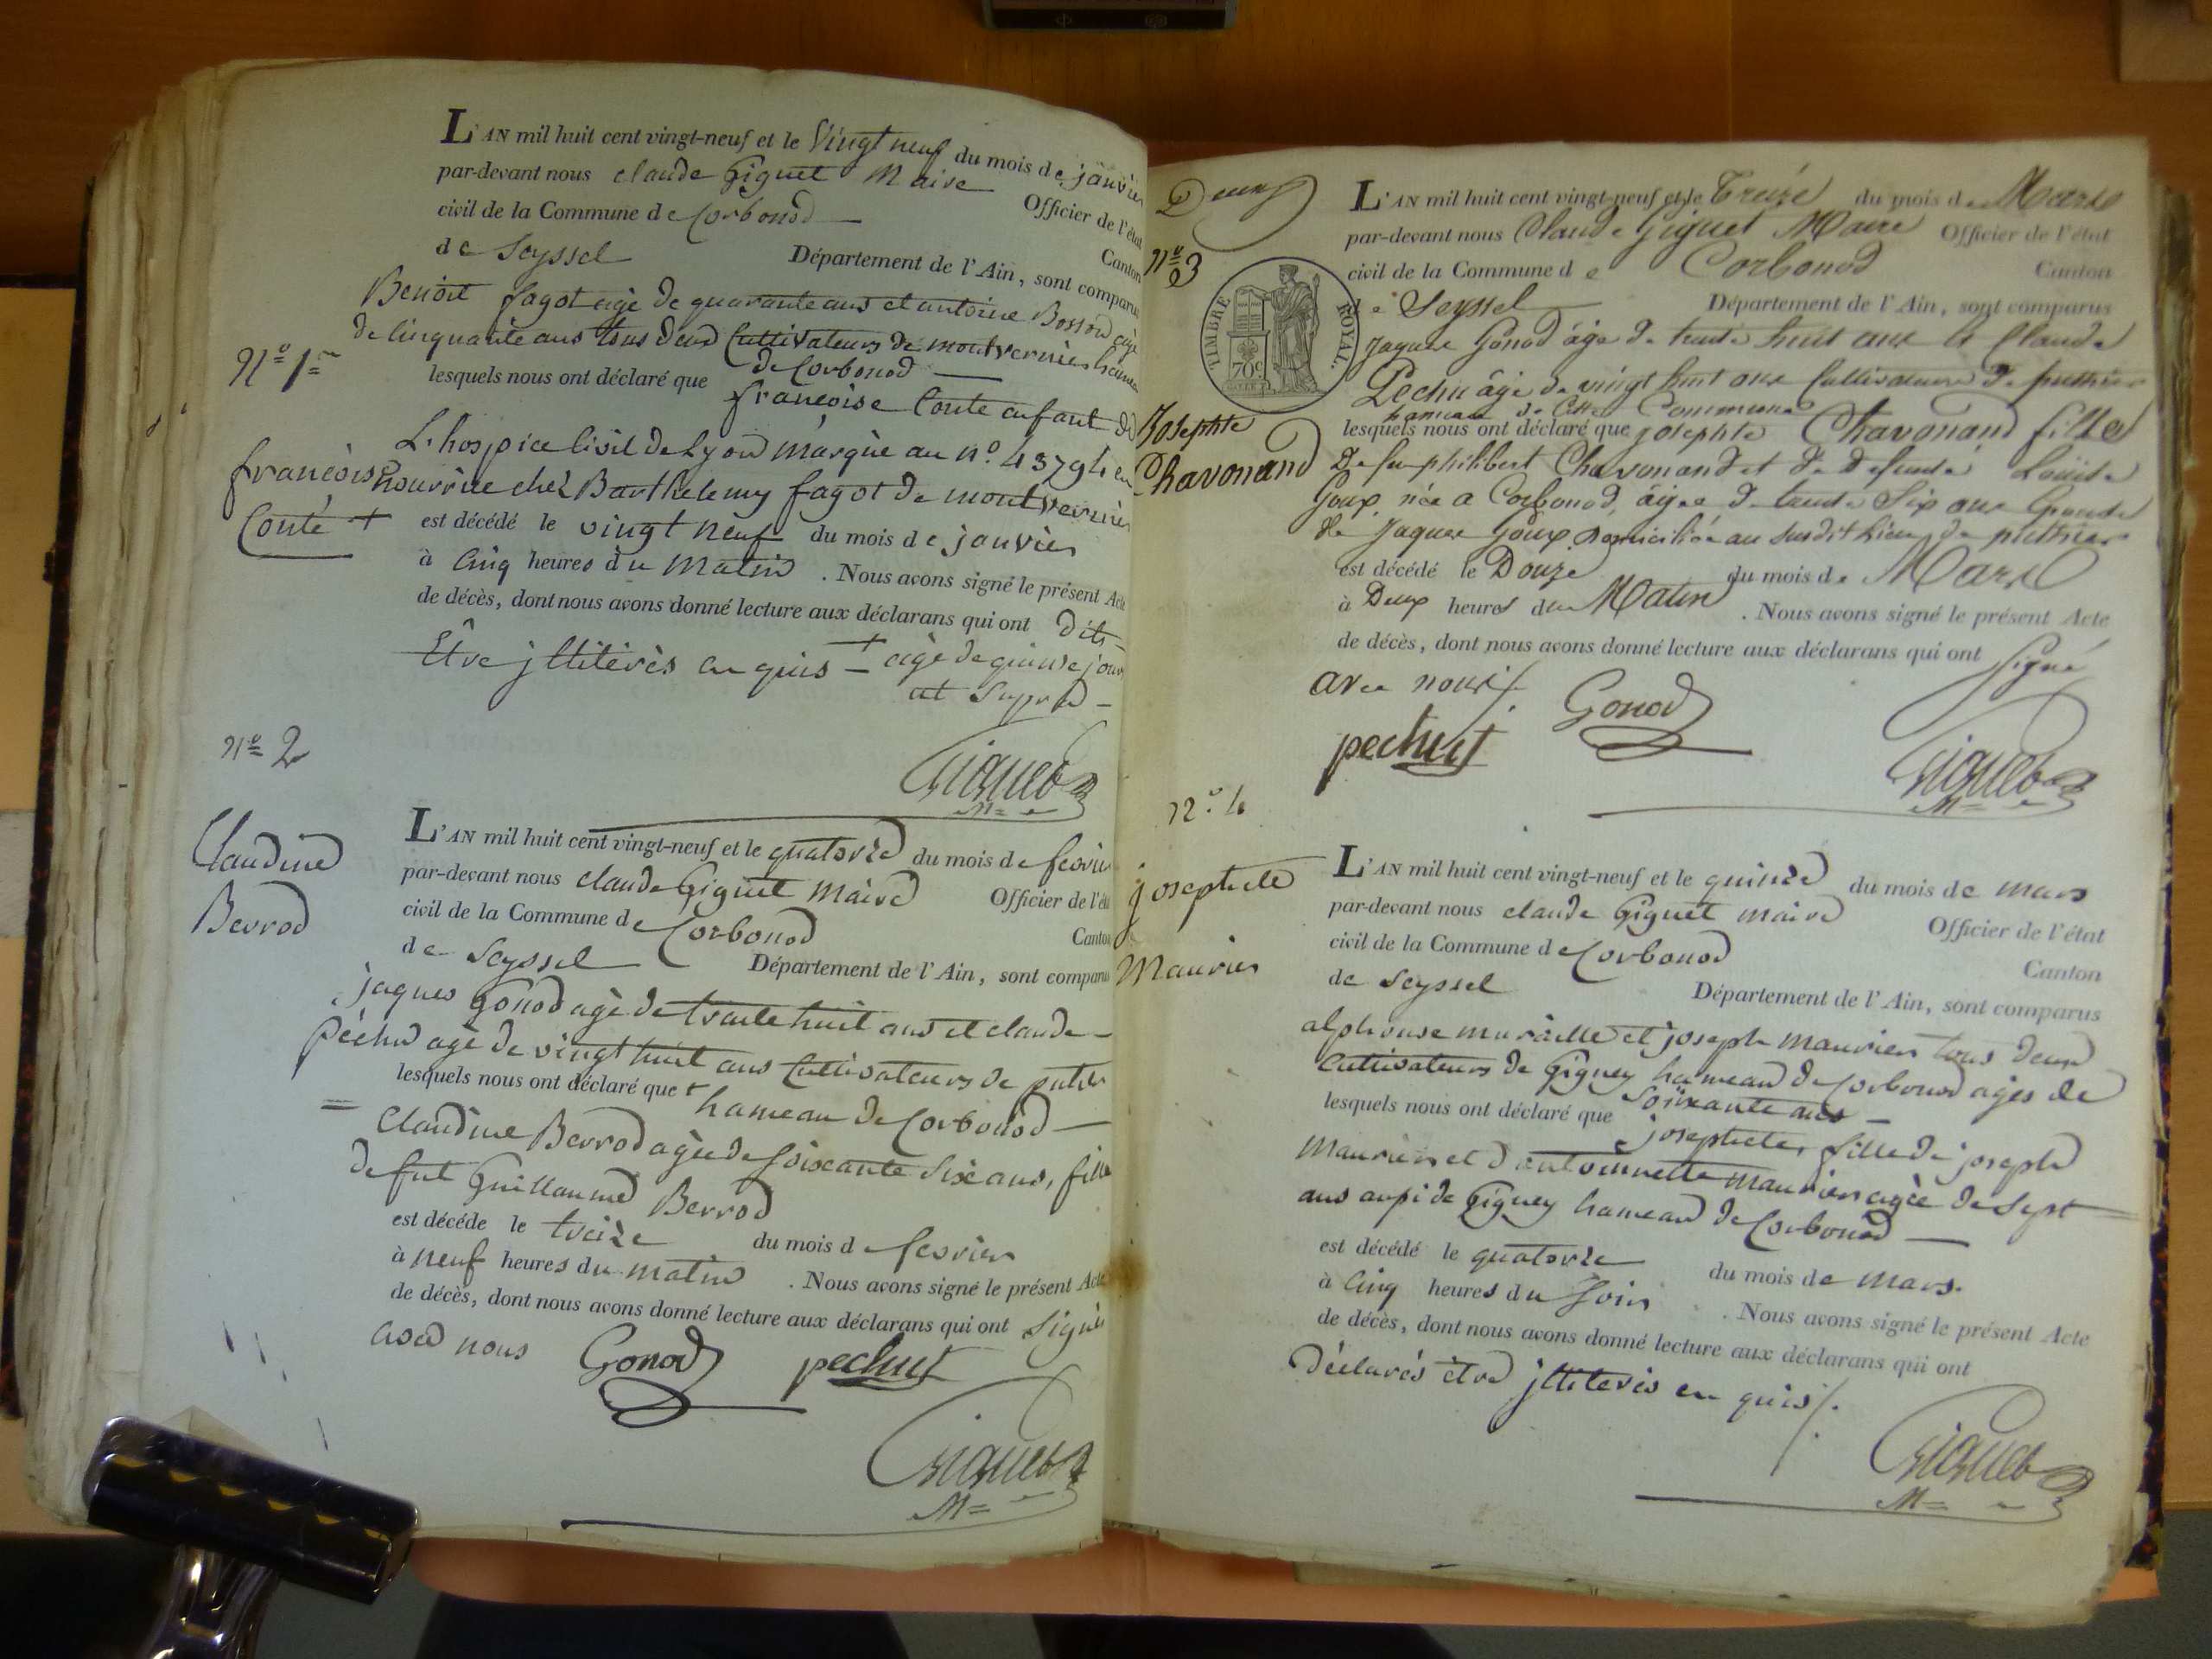 L'AN mil huit cent vingt-neuf et le Vingt neuf du mois de janvier
par-devant nous claude Giguet Maire Officier de l'état
civil de la Commune de Corbonod Canton
de Seyssel Département de l'Ain, sont comparus
Benoit fagot agé de quarante ans et antoine Bosson agé
de Cinquante ans tous deux Cultivateurs de montvernier hameau
de Corbonod
lesquels nous ont déclaré que françoise Conte enfant de
L'hospice Civil de Lyon marquée au n.° 43794 en
nourrice chez Barthelemy fagot de montvernier
est décédé le vingt neuf du mois de janvier
à Cinq heures du Matin. Nous avons signé le présent Acte
de décès, dont nous avons donné lecture aux déclarans qui ont dits
Etre jllitérès en quis + agé de quinse jours
ut Supra
N.° 1er
françoise
Conté +
Giguet
M=
N° 2
Claudine
Berrod
L'AN mil huit cent vingt-neuf et le quatorze du mois de fevrier
par-devant nous claude Giguet maire Officier de l'état
civil de la Commune de Corbonod Canton
de Seyssel Département de l'Ain, sont comparus
jaques Gonod agé de trente huit ans et claude
péchud agé de vingt huit ans Cultivateurs de puthier
lesquels nous ont déclaré que + hameau de Corbonod
= Claudine Berrod agée de soixante six ans, fille
de fut Guillaume Berrod
est décédé le treize du mois de fevrier
à neuf heures du matin. Nous avons signé le présent Acte
de décès, dont nous avons donné lecture aux déclarans qui ont signés
avec nous Gonod pechut
Giguet
M=
Deux
N° 3
TIMBRE ROYAL.
70c
Josephte
Chavonand
L'AN mil huit cent vingt-neuf et le Treize du mois de Mars
par-devant nous Claude Giguet Maire Officier de l'état
civil de la Commune de Corbonod Canton
de Seyssel Département de l'Ain, sont comparus
Jaques Gonod âgé de trente huit ans et Claude
Pechu âgé de vingt huit ans Cultivateurs de puthier
hameau de Cette Commune
lesquels nous ont déclaré que josephte Chavonand fille
De feu philibert Chavonand et de Defunte Louise
Joux née a Corbonod, âgée de trente Six ans Epouse
de Jaques Joux Domiciliée au susdit lieu de puthier
est décédé le Douze du mois de Mars
à Deux heures du Matin. Nous avons signé le présent Acte
de décès, dont nous avons donné lecture aux déclarans qui ont signé
avec nous /. Gonod
pechut Giguet
M=
N.° 4
josephete
Maurier
L'AN mil huit cent vingt-neuf et le quinze du mois de mars
par-devant nous claude Giguet maire Officier de l'état
civil de la Commune de Corbonod Canton
de Seyssel Département de l'Ain, sont comparus
alphonse muraille et joseph maurier tous deux
Cultivateurs de Gigney hameau de Corbonod agés de
soixante ans
lesquels nous ont déclaré que josephete, fille de joseph
maurier et d'antoinnette maurier agée de sept
ans aussi de Gigney hameau de Corbonod
est décédé le quatorze du mois de mars.
à Cinq heures du soir. Nous avons signé le présent Acte
de décès, dont nous avons donné lecture aux déclarans qui ont
déclarés être jlliterés en quis /.
Giguet
M=